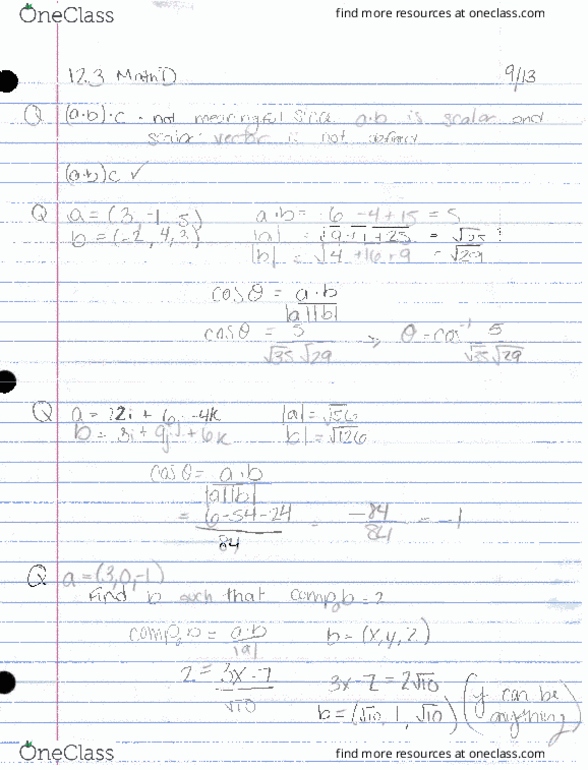 OneClass
find more resources at oneclass.com
12.3 Math D
9/13
Q (a·b)·c - not meaningful since a·b is scalar and
scalar · vector is not
(a·b)c ✓
Q a = (3, -1, 5) a·b = -6 -4 +15 = 5
b = (-2, 4, 3) |a| = √9+1+25 = √35
|b| = √4+16+9 = √29
cosθ = a·b
|a||b|
cosθ = 5 ⇒ θ = cos⁻¹ 5
√35 √29 √35 √29
Q a = 2i + 6 -4k |a| = √56
b = 3i + 9j + 6k |b| = √126
cosθ = a·b
|a||b|
= 6-54-24 = -84 = -1
84 84
Q a = (3, 0, -1)
Find b such that compₐb = 2
compₐb = a·b b = (x, y, z)
|a|
2 = 3x - z 3x - z = 2√10
√10
b = (√10, 1, √10) (y can be
anything)
OneClass
find more resources at oneclass.com